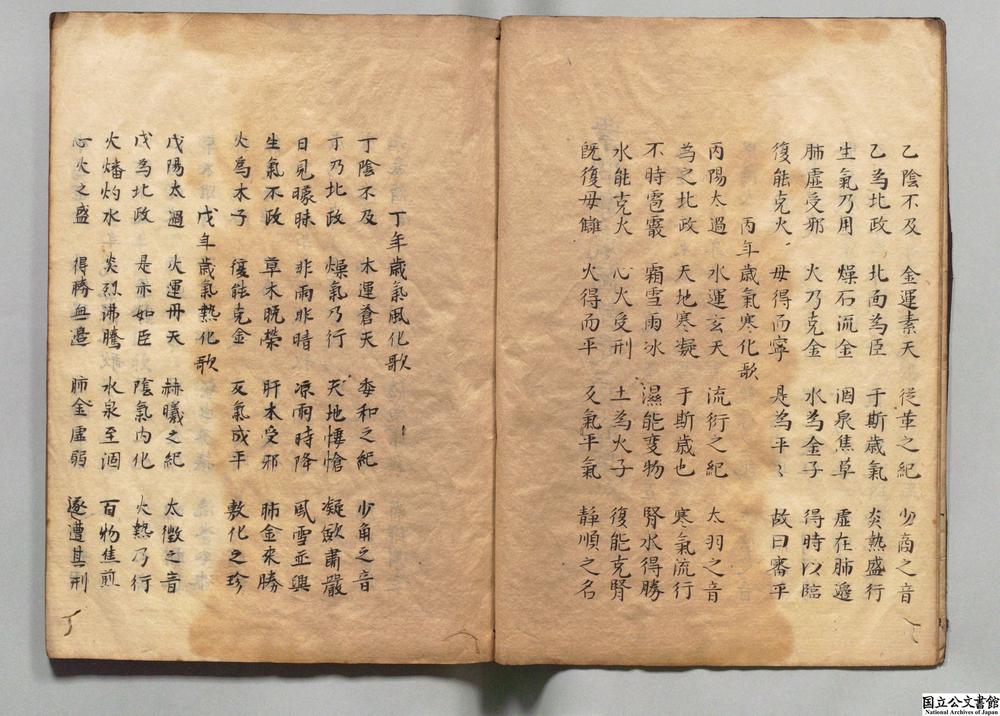 乙陰不及 金運素天 従革之紀 少商之音
乙為北政 北面為臣 于斯歳氣 炎熱盛行
生氣乃用 燥石流金 涸泉焦草 虚在肺邉
肺虚受邪 火乃克金 水為金子 得時以臨
復能克火 母得而寧 是為平〻 故曰審平
丙年歳氣寒化歌
丙陽太過 水運玄天 流衍之紀 太羽之音
為之北政 天地寒凝 于斯歳也 寒氣流行
不時雹霰 霜雪雨冰 濕能変物 腎水得勝
水能克火 心火受刑 土為火子 復能克腎
既復母讎 火得而平 又氣平氣 静順之名
丁年歳氣風化歌
丁陰不及 木運蒼天 委和之紀 少角之音
丁乃北政 燥氣乃行 天地悽愴 凝歛肅嚴
日見曚昧 非雨非晴 凉雨時降 風雪並興
生氣不政 草木晩榮 肝木受邪 肺金来勝
火爲木子 復能克金 又氣成平 敷化之珍
戊年歳氣熱化歌
戊陽太過 火運丹天 赫曦之紀 太徴之音
戊為北政 是亦如臣 陰氣内化 火熱乃行
火燔灼水 炎烈沸騰 水泉至涸 百物焦煎
心火之盛 得勝無邉 肺金虚弱 逐遭其刑
国立公文書館
National Archives of Japan